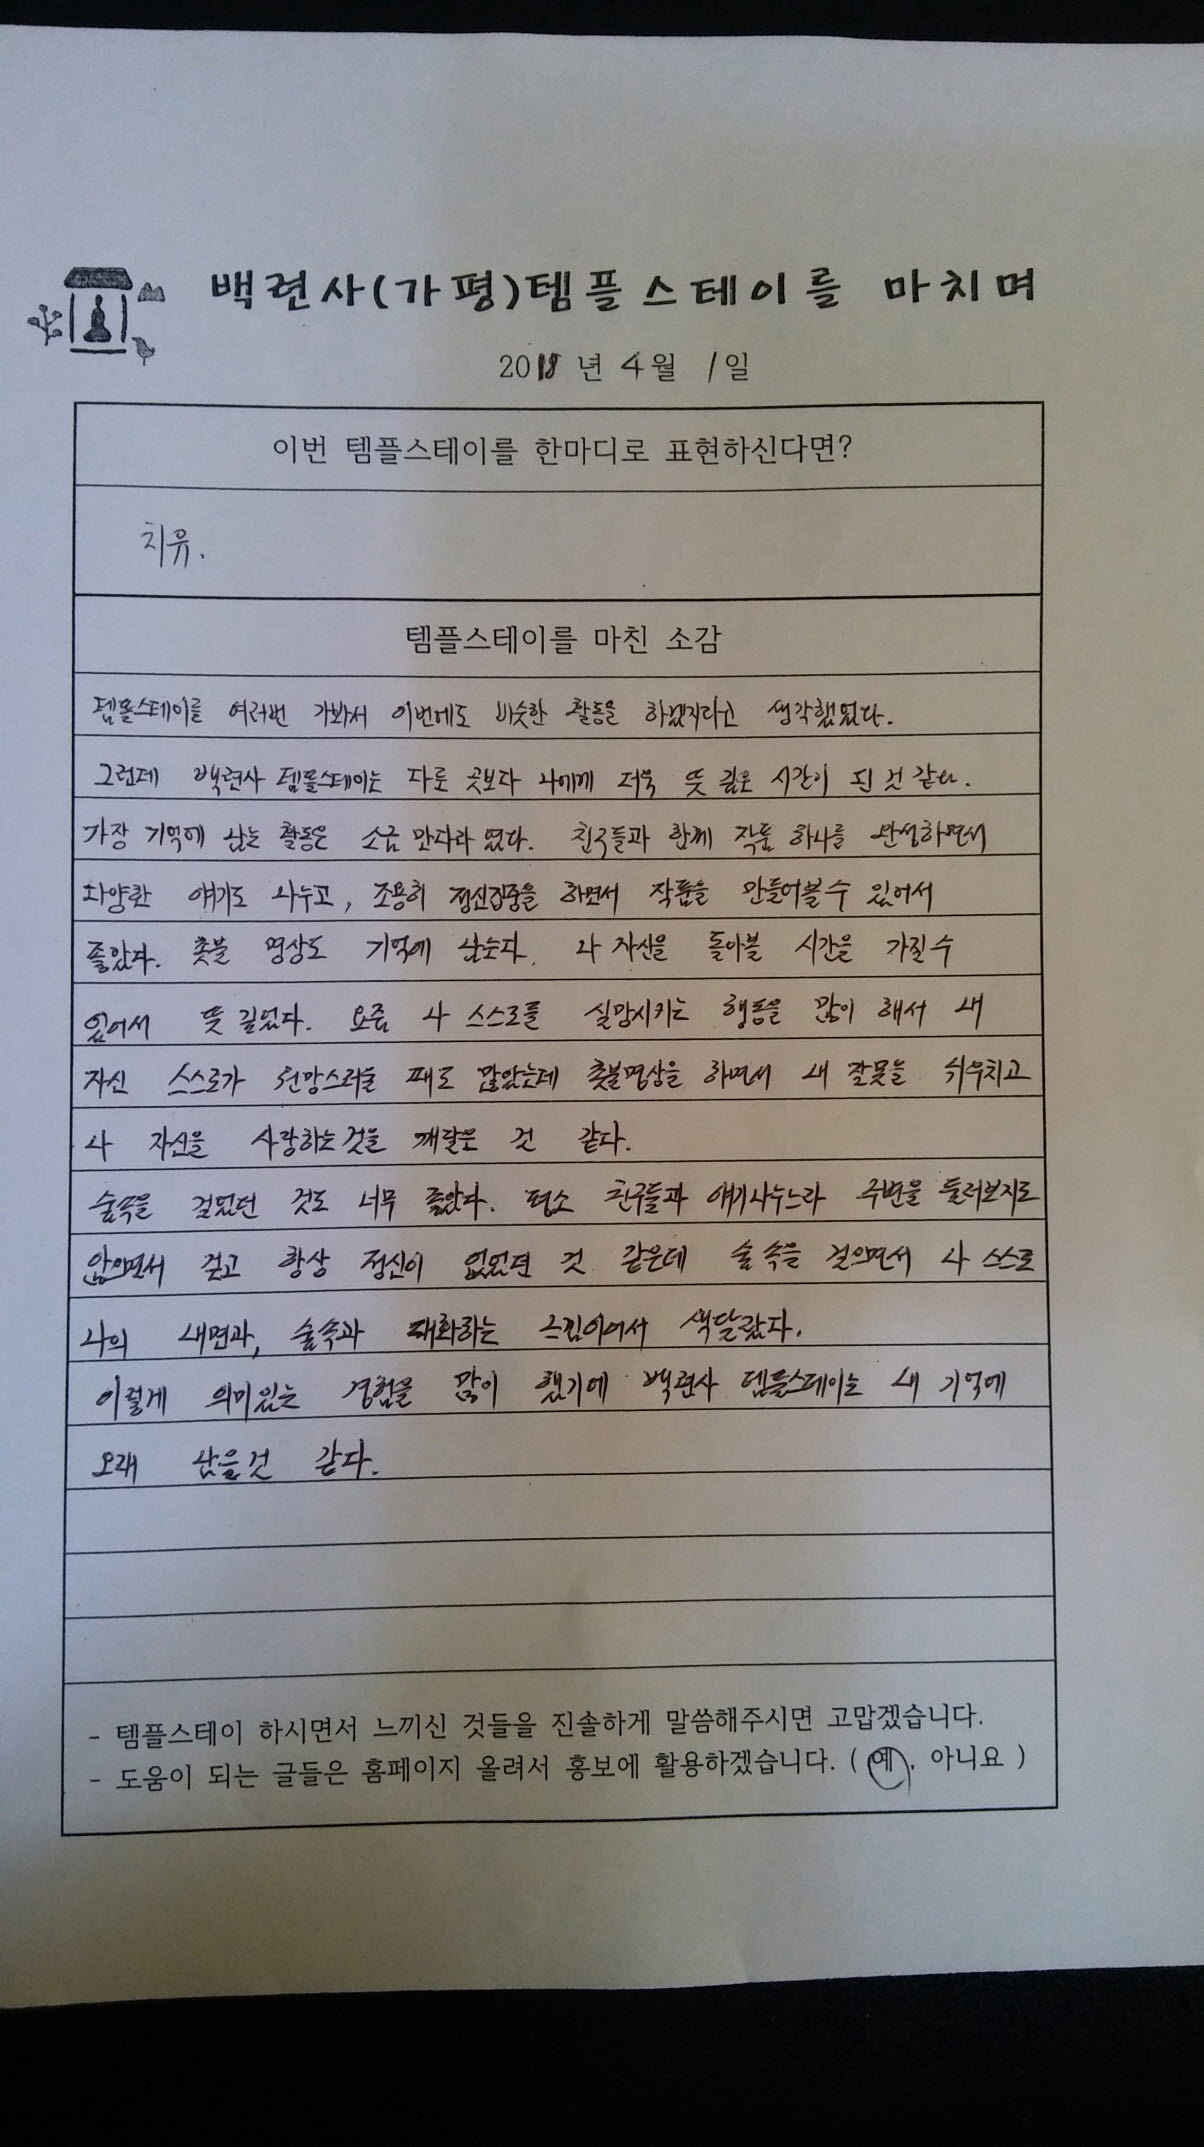 백련사(가평)템플스테이를 마치며
2018 년 4월 1일
이번 템플스테이를 한마디로 표현하신다면?
치유.
템플스테이를 마친 소감
템플스테이를 여러번 가봐서 이번에도 비슷한 활동을 하겠지라고 생각했었다.
그런데 백련사 템플스테이는 다른 곳보다 나에게 더욱 뜻 깊은 시간이 된 것 같다.
가장 기억에 남는 활동은 소금 만다라 였다. 친구들과 함께 작품 하나를 완성하면서
다양한 얘기도 나누고, 조용히 정신집중을 하면서 작품을 만들어볼 수 있어서
좋았다. 촛불 명상도 기억에 남는다. 나 자신을 돌아볼 시간을 가질 수
있어서 뜻 깊었다. 요즘 나 스스로를 실망시키는 행동을 많이 해서 내
자신 스스로가 원망스러울 때도 많았는데 촛불명상을 하면서 내 잘못을 뉘우치고
나 자신을 사랑하는 것을 깨달은 것 같다.
숲속을 걸었던 것도 너무 좋았다. 평소 친구들과 얘기나누느라 주변을 둘러보지도
않으면서 걷고 항상 정신이 없었던 것 같은데 숲 속을 걸으면서 나 스스로
나의 내면과, 숲속과 대화하는 느낌이어서 색달랐다.
이렇게 의미있는 경험을 많이 했기에 백련사 템플스테이는 내 기억에
오래 남을것 같다.
- 템플스테이 하시면서 느끼신 것들을 진솔하게 말씀해주시면 고맙겠습니다.
- 도움이 되는 글들은 홈페이지 올려서 홍보에 활용하겠습니다. ( 예, 아니요 )